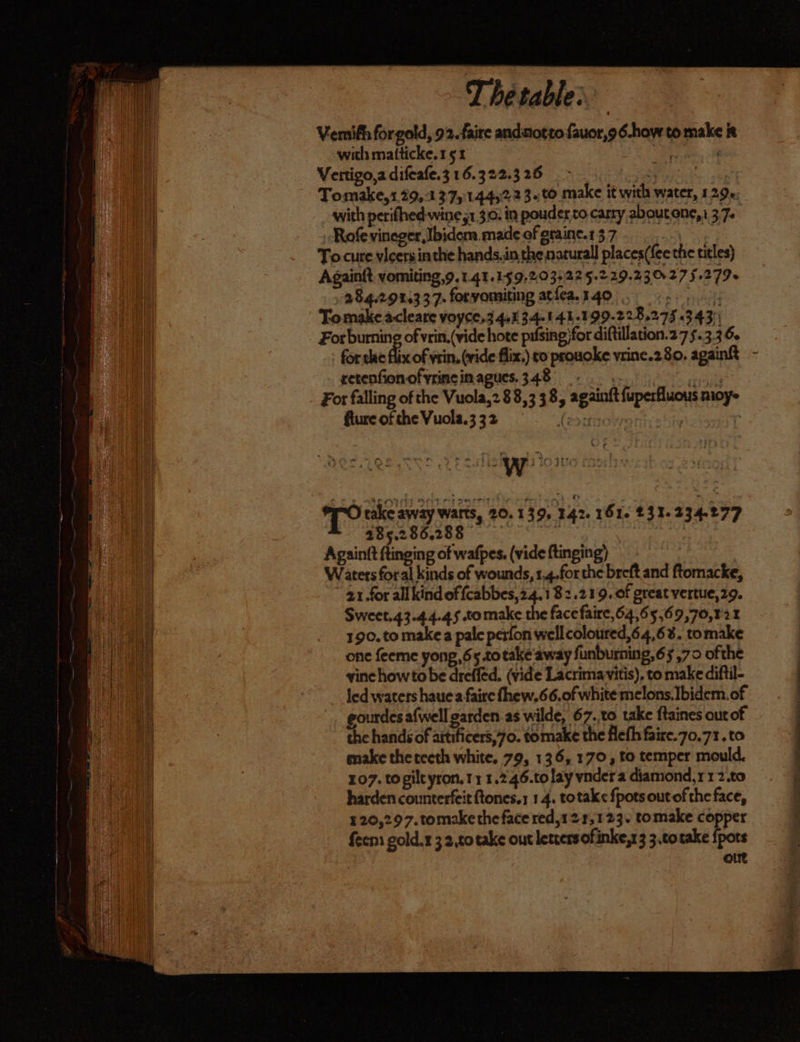 The table.
Vernish for gold, 92. faire and not to fauor, 96. how to make it
with masticke. 151
Vertigo, a disease. 316. 322. 326
To make, 129, 137, 144, 223. to make it with water, 129.
with perished wine, 130. in pouder to carry about one, 137.
Rose vineger, Ibidem. made of graine. 137
To cure vlcers in the hands, in the naturall places (see the titles)
Against vomiting, 9. 141. 159. 203. 225. 229. 230. 275. 279.
284. 291. 337. for vomiting at sea. 140
To make a cleare voyce. 34. 134. 141. 199. 228. 275. 343
For burning of vrin, (vide hote pissing) for distillation. 275. 336.
for the flix of vrin. (vide flix.) to prouoke vrine. 280. against
retension of vrine in agues. 348
For falling of the Vuola, 288, 338, against superfluous moy-
sture of the Vuola. 332
W
TO take away warts, 20. 139. 142. 161. 231. 234. 277
285. 286. 288
Against stinging of waspes. (vide stinging)
Waters for al kinds of wounds, 14. for the brest and stomacke,
21. for all kind of scabbes, 24. 182. 219. of great vertue, 29.
Sweet. 43. 44. 45. to make the face faire, 64, 65, 69, 70, 121
190. to make a pale person well coloured, 64, 68. to make
one seeme yong, 65. to take away sunburning, 65, 70 of the
vine how to be dressed. (vide Lacrima vitis). to make distil-
led waters haue a faire shew. 66. of white melons. Ibidem. of
gourdes aswell garden as wilde, 67. to take staines out of
the hands of artificers, 70. to make the flesh faire. 70. 71. to
make the teeth white. 79, 136, 170, to temper mould.
107. to gilt yron. 111. 246. to lay vnder a diamond, 112, to
harden counterfeit stones. 114. to take spots out of the face,
120, 297. to make the face red, 121, 123. to make copper
seem gold. 132, to take out letters of inke, 133. to take spots
out